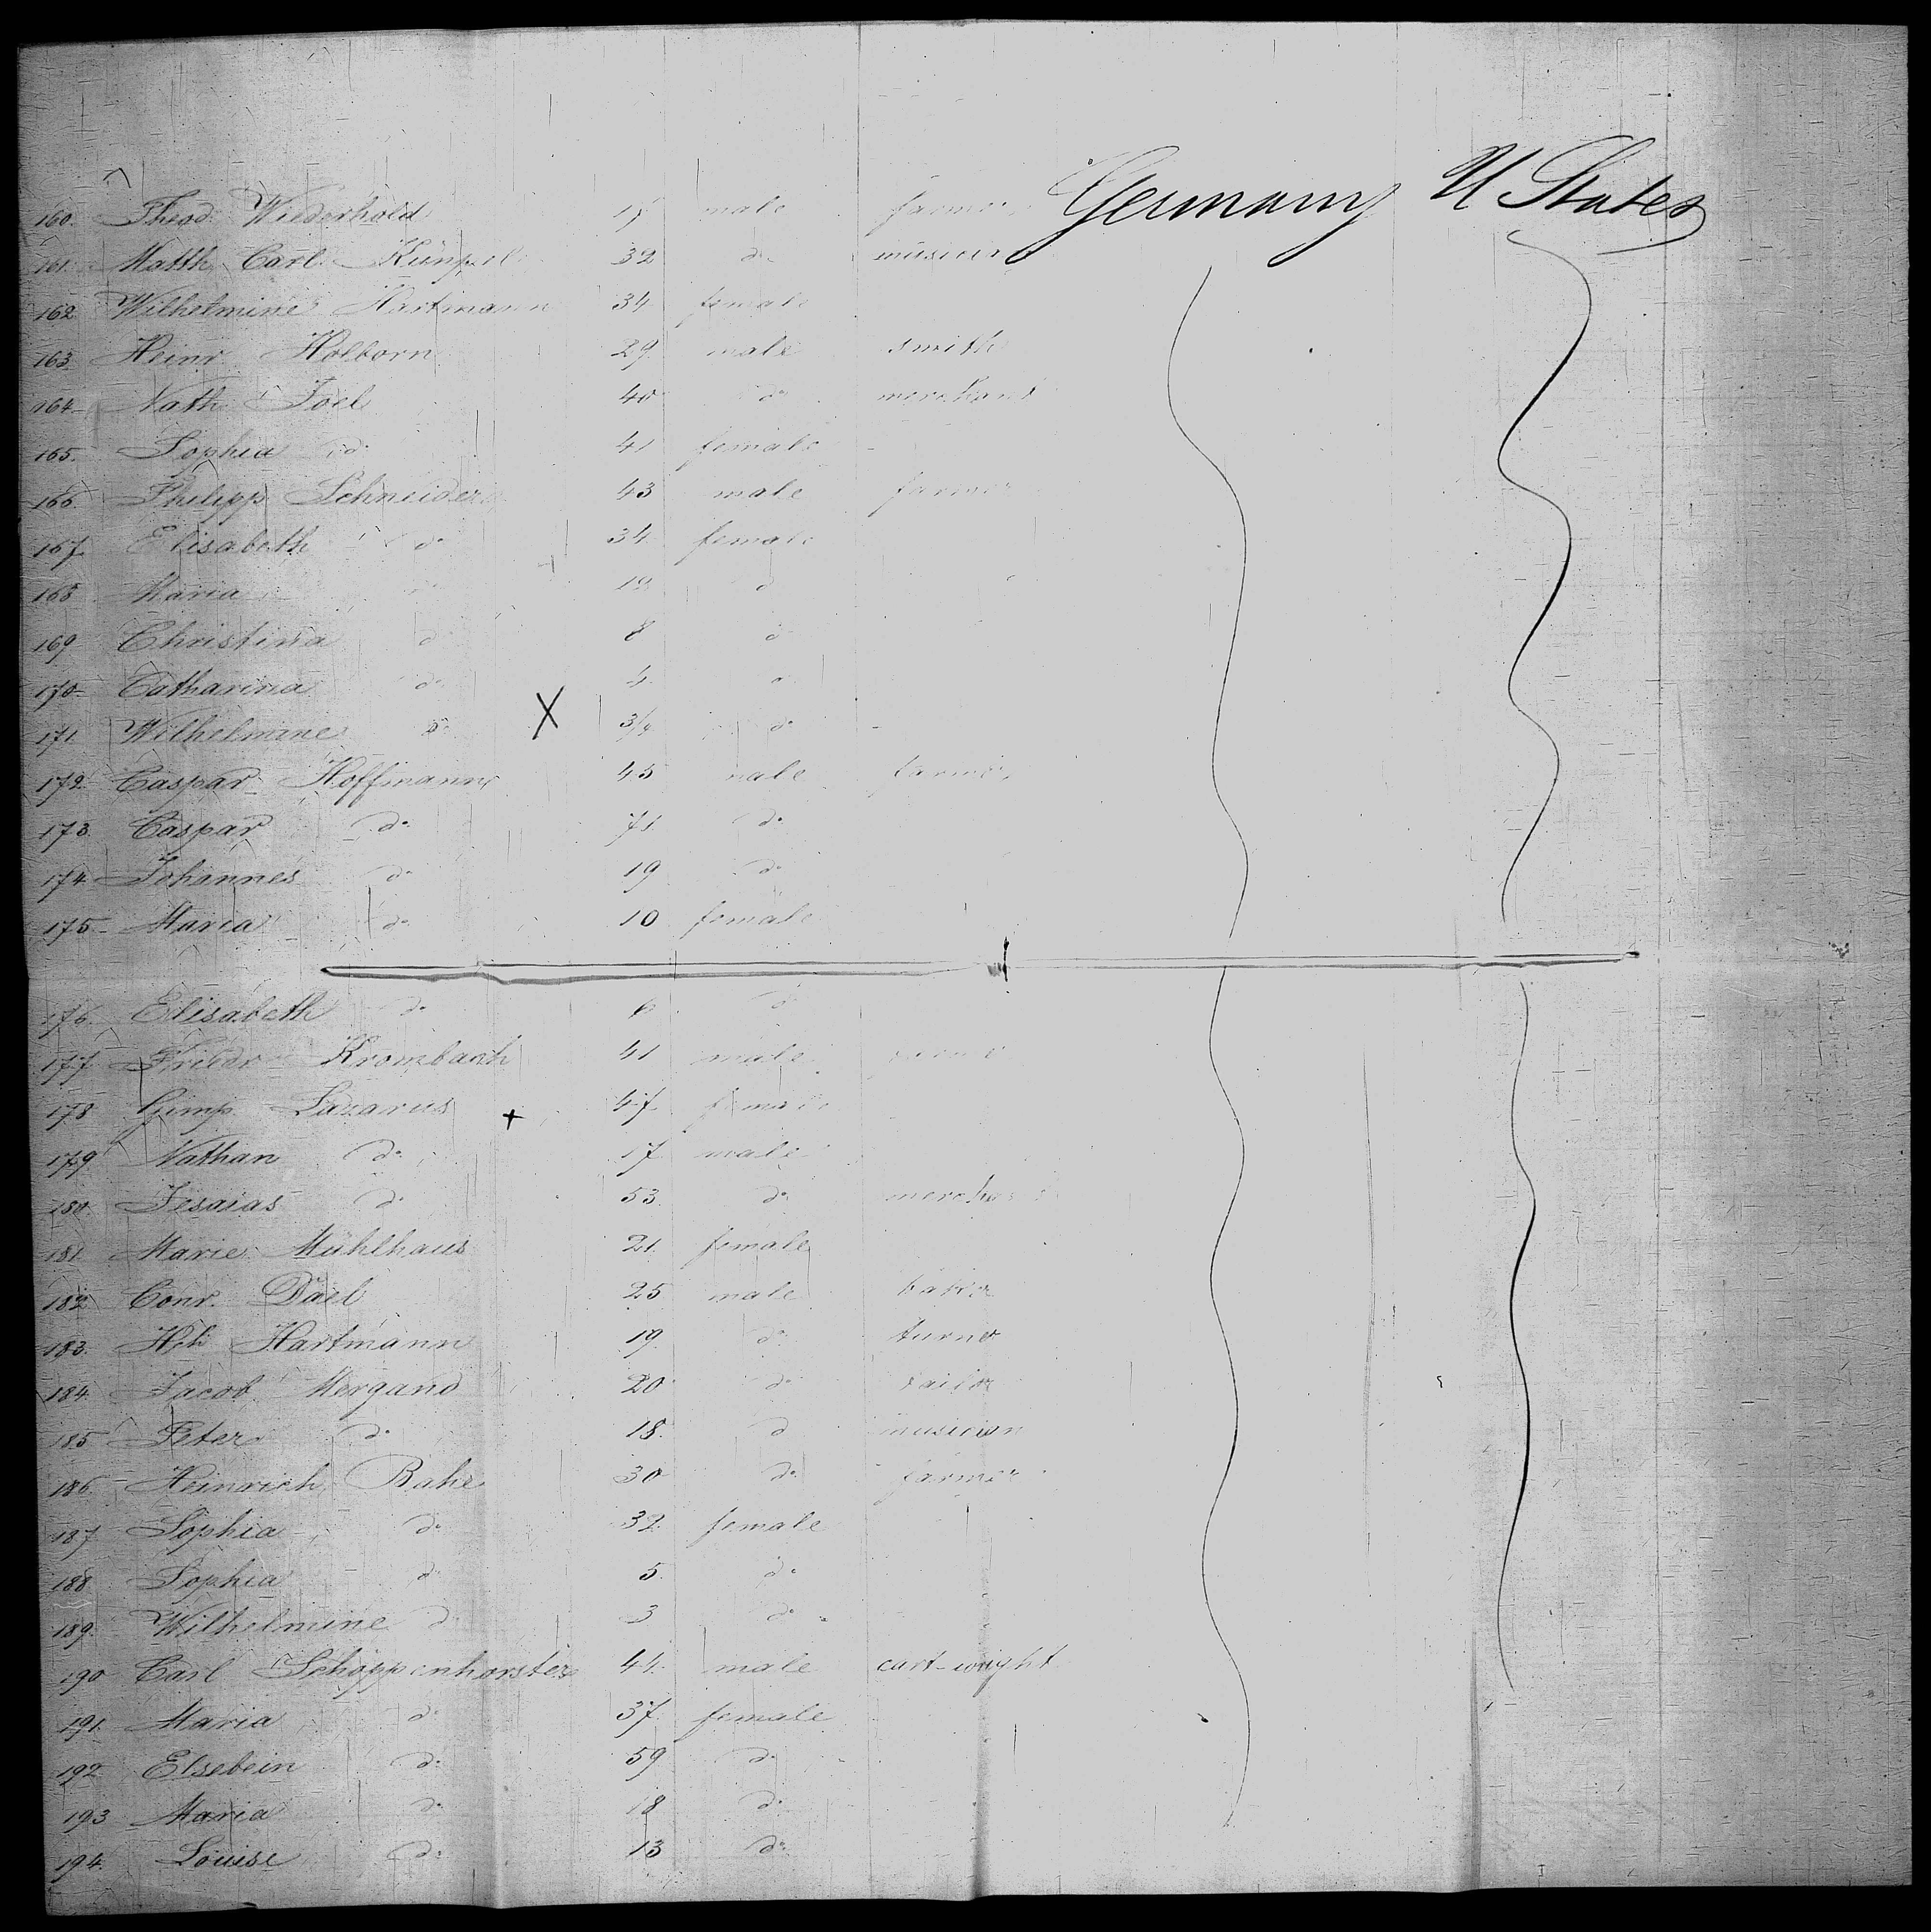 Germany U States
160. Theod. Wiederhold male farmer
161. Matth. Carl 32 do musician
162. Wilhelmine Hartmann 34 female
163. Heinr. Holborn 29 male smith
164. Nath. Joel 40 do merchant
165. Sophia do 41 female
166. Philipp Schneider 43 male farmer
167. Elisabeth do 34 female
168 Maria do
169 Christina do 8 do
170 Catharina do 4 do
171. Wilhelmine do X 3/4 do
172. Caspar Hoffmann 45 male farmer
173. Caspar do do
174 Johannes do 19 do
175 Maria do 10 female
176. Elisabeth do 6 do
177. Friedr Krombach 41 male
178 Lazarus + 47 female
179 Nathan do 17 male
180. Jesaias do 53 do merchant
181. Marie Mühlhaus 21. female
182 Conr. 25 male
183. Hartmann 19 do turner
184. Jacob Mergand 20 do tailor
185 Peter do 18. do musician
186. Heinrich Bahe 30 do farmer
187 Sophia do 32. female
188 Sophia do 5. do
189. Wilhelmine do 3 do
190 Carl Schoppenhorster 44. male cart-wright
191. Maria do 37. female
192. Elsebein do 59 do
193 Maria do 18 do
194. Louise do 13 do